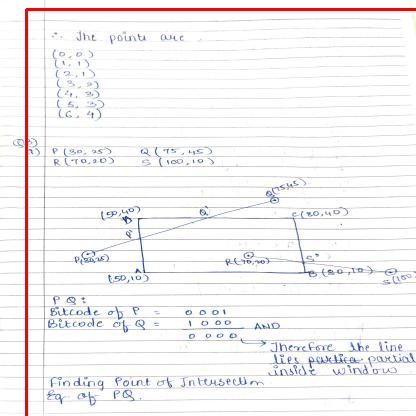 ∴ The points are
(0,0)
(1,1)
(2,1)
(3,2)
(4,3)
(5,3)
(6,4)
P(30,25) Q(75,45)
R(70,20) S(100,10)
Q(75,45)
(50,40) B Q' C(80,40)
P'
P(30,25) R(70,20) S'
(50,10) A B(80,10) S(100,10)
PQ:
Bitcode of P = 0001
Bitcode of Q = 1000 AND
0000
Therefore the line
lies partial
inside window
Finding Point of Intersection
Eq of PQ.